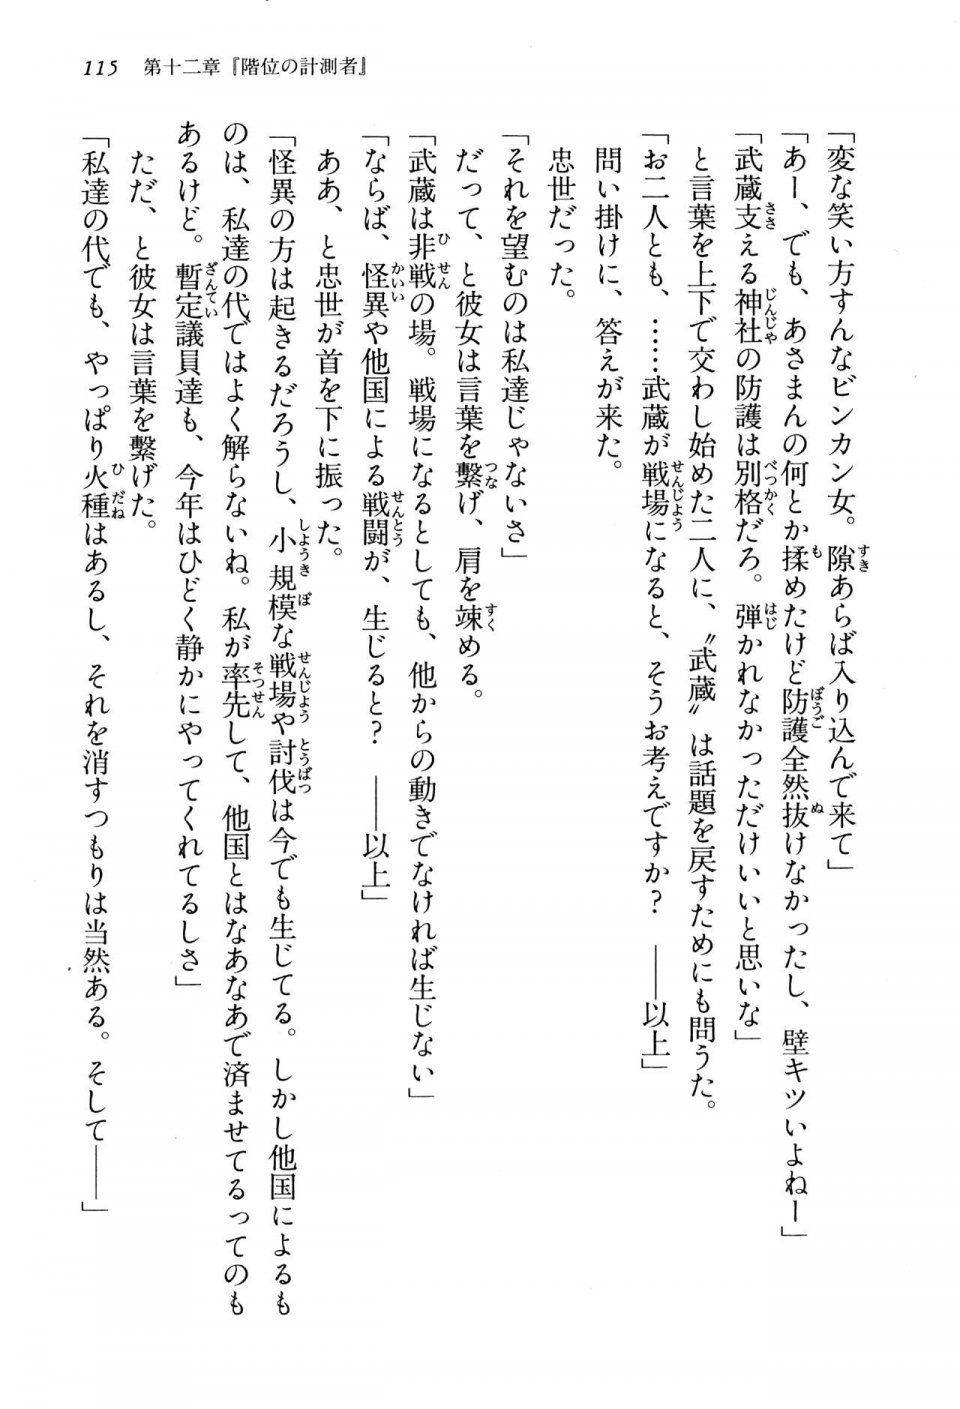 115　第十二章『階位の計測者』
「変な笑い方すんなビンカン女。隙あらば入り込んで来て」
「あー、でも、あさまんの何とか揉めたけど防護全然抜けなかったし、壁キツいよねー」
「武蔵支える神社の防護は別格だろ。弾かれなかっただけいいと思いな」
　と言葉を上下で交わし始めた二人に、〝武蔵〟は話題を戻すためにも問うた。
「お二人とも、……武蔵が戦場になると、そうお考えですか？　――以上」
　問い掛けに、答えが来た。
　忠世だった。
「それを望むのは私達じゃないさ」
　だって、と彼女は言葉を繋げ、肩を竦める。
「武蔵は非戦の場。戦場になるとしても、他からの動きでなければ生じない」
「ならば、怪異や他国による戦闘が、生じると？　――以上」
　ああ、と忠世が首を下に振った。
「怪異の方は起きるだろうし、小規模な戦場や討伐は今でも生じてる。しかし他国によるも
のは、私達の代ではよく解らないね。私が率先して、他国とはなあなあで済ませてるってのも
あるけど。暫定議員達も、今年はひどく静かにやってくれてるしさ」
　ただ、と彼女は言葉を繋げた。
「私達の代でも、やっぱり火種はあるし、それを消すつもりは当然ある。そして――」